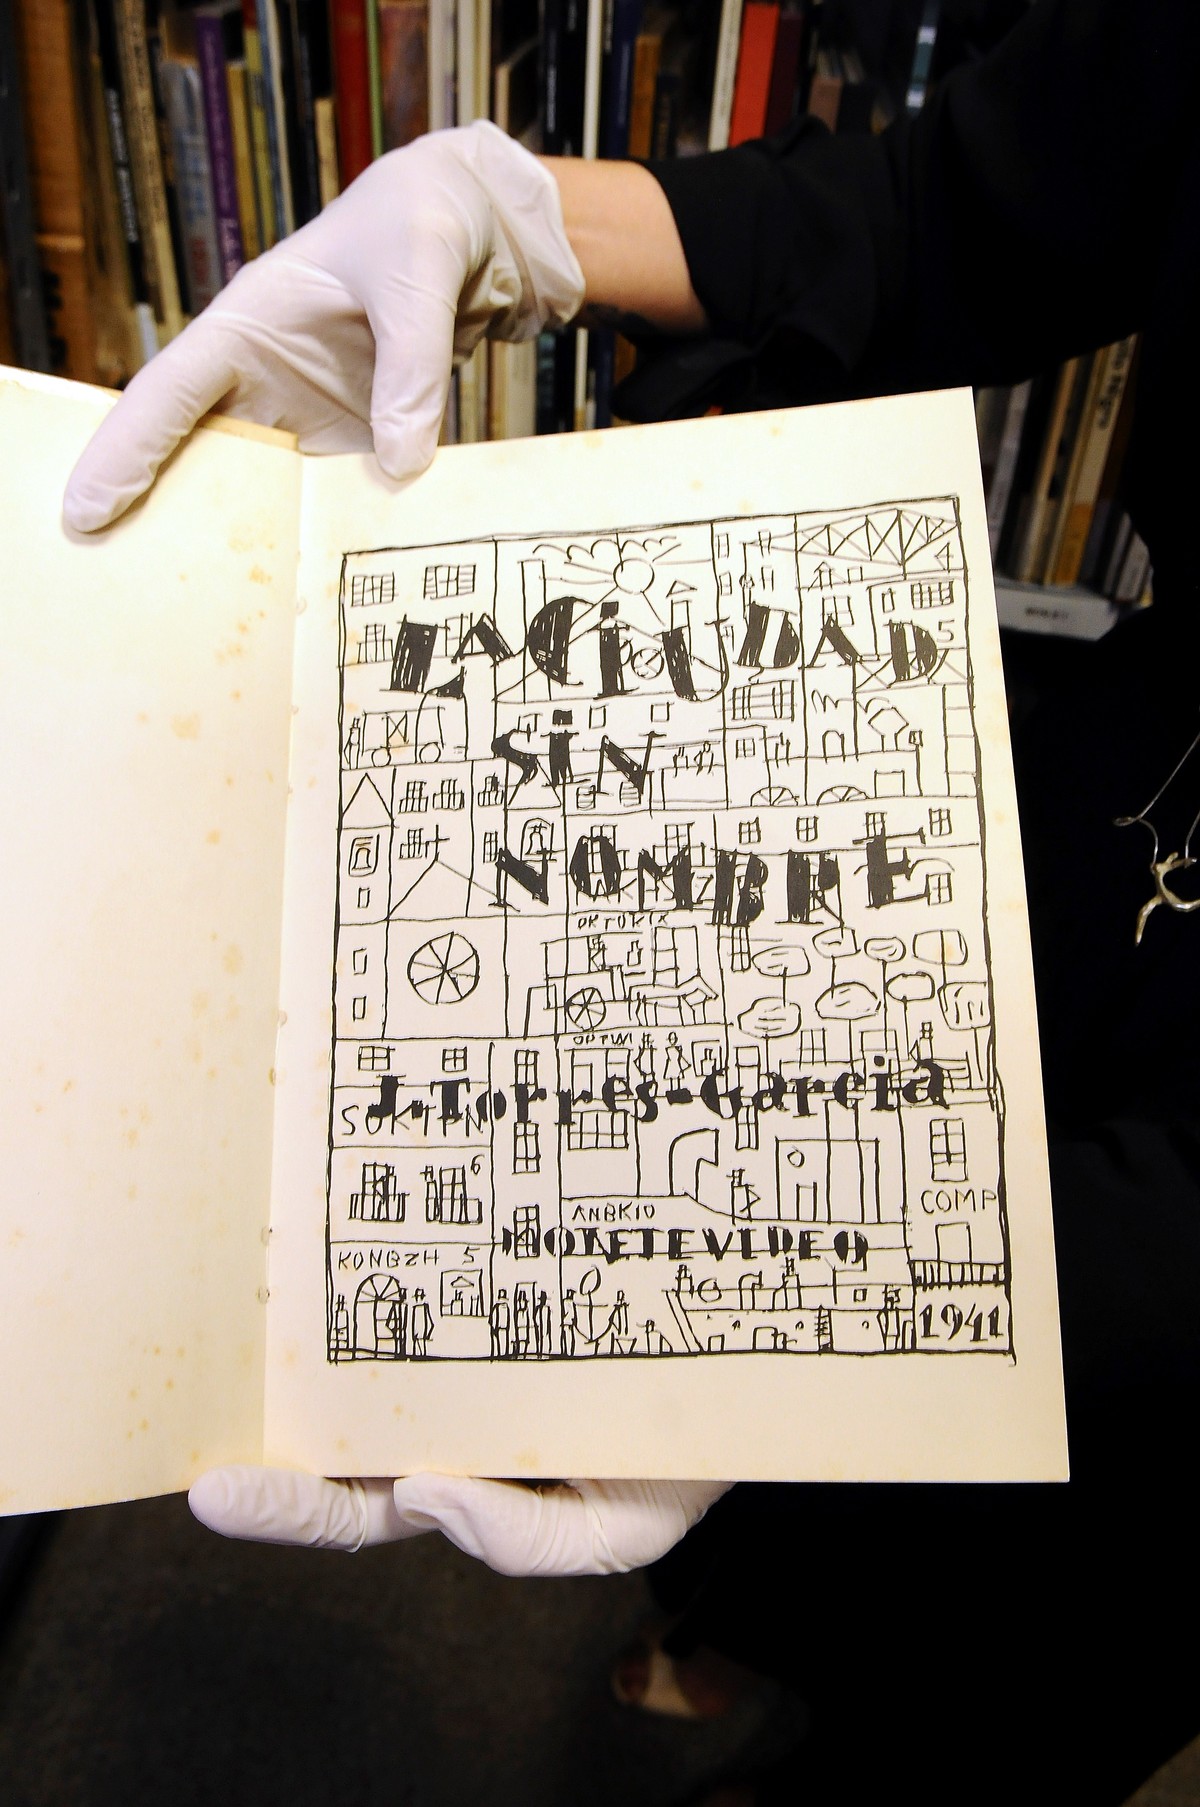 4
LA CiUDAD
5
SiN
NOMBRE
OKTOKIX
OPTWI
J.Torres-Garcia
SOKTPN
6
COMP
ANBKIO
MONTEVIDEO
KONBZH 5
1941